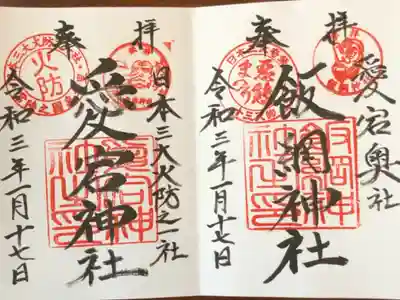 奉拝
愛宕奥社
飯綱神社
令和三年一月十七日
奉拝
日本三大火防之一社
火防
愛宕神社
令和三年一月十七日